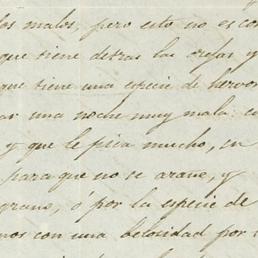 los malos, pero esto no es con
que tiene detras las orejas y
que tiene una especie de hervor
ar una noche muy mala: e
y que le pica mucho, en
para que no se arañe, y
grano, ó por la especie de
nos con una belosidad por